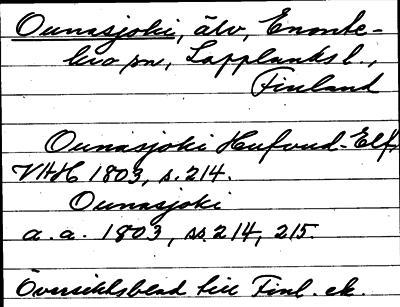 Ounasjoki, älv, Enonte-
kis sn, Lapplands l.,
Finland
Ounasjoki Hufvud-Elf,
VHH 1803, s. 214.
Ounasjoki
a.a. 1803, ss. 214, 215.
Översiktsblad till Finl. ek.